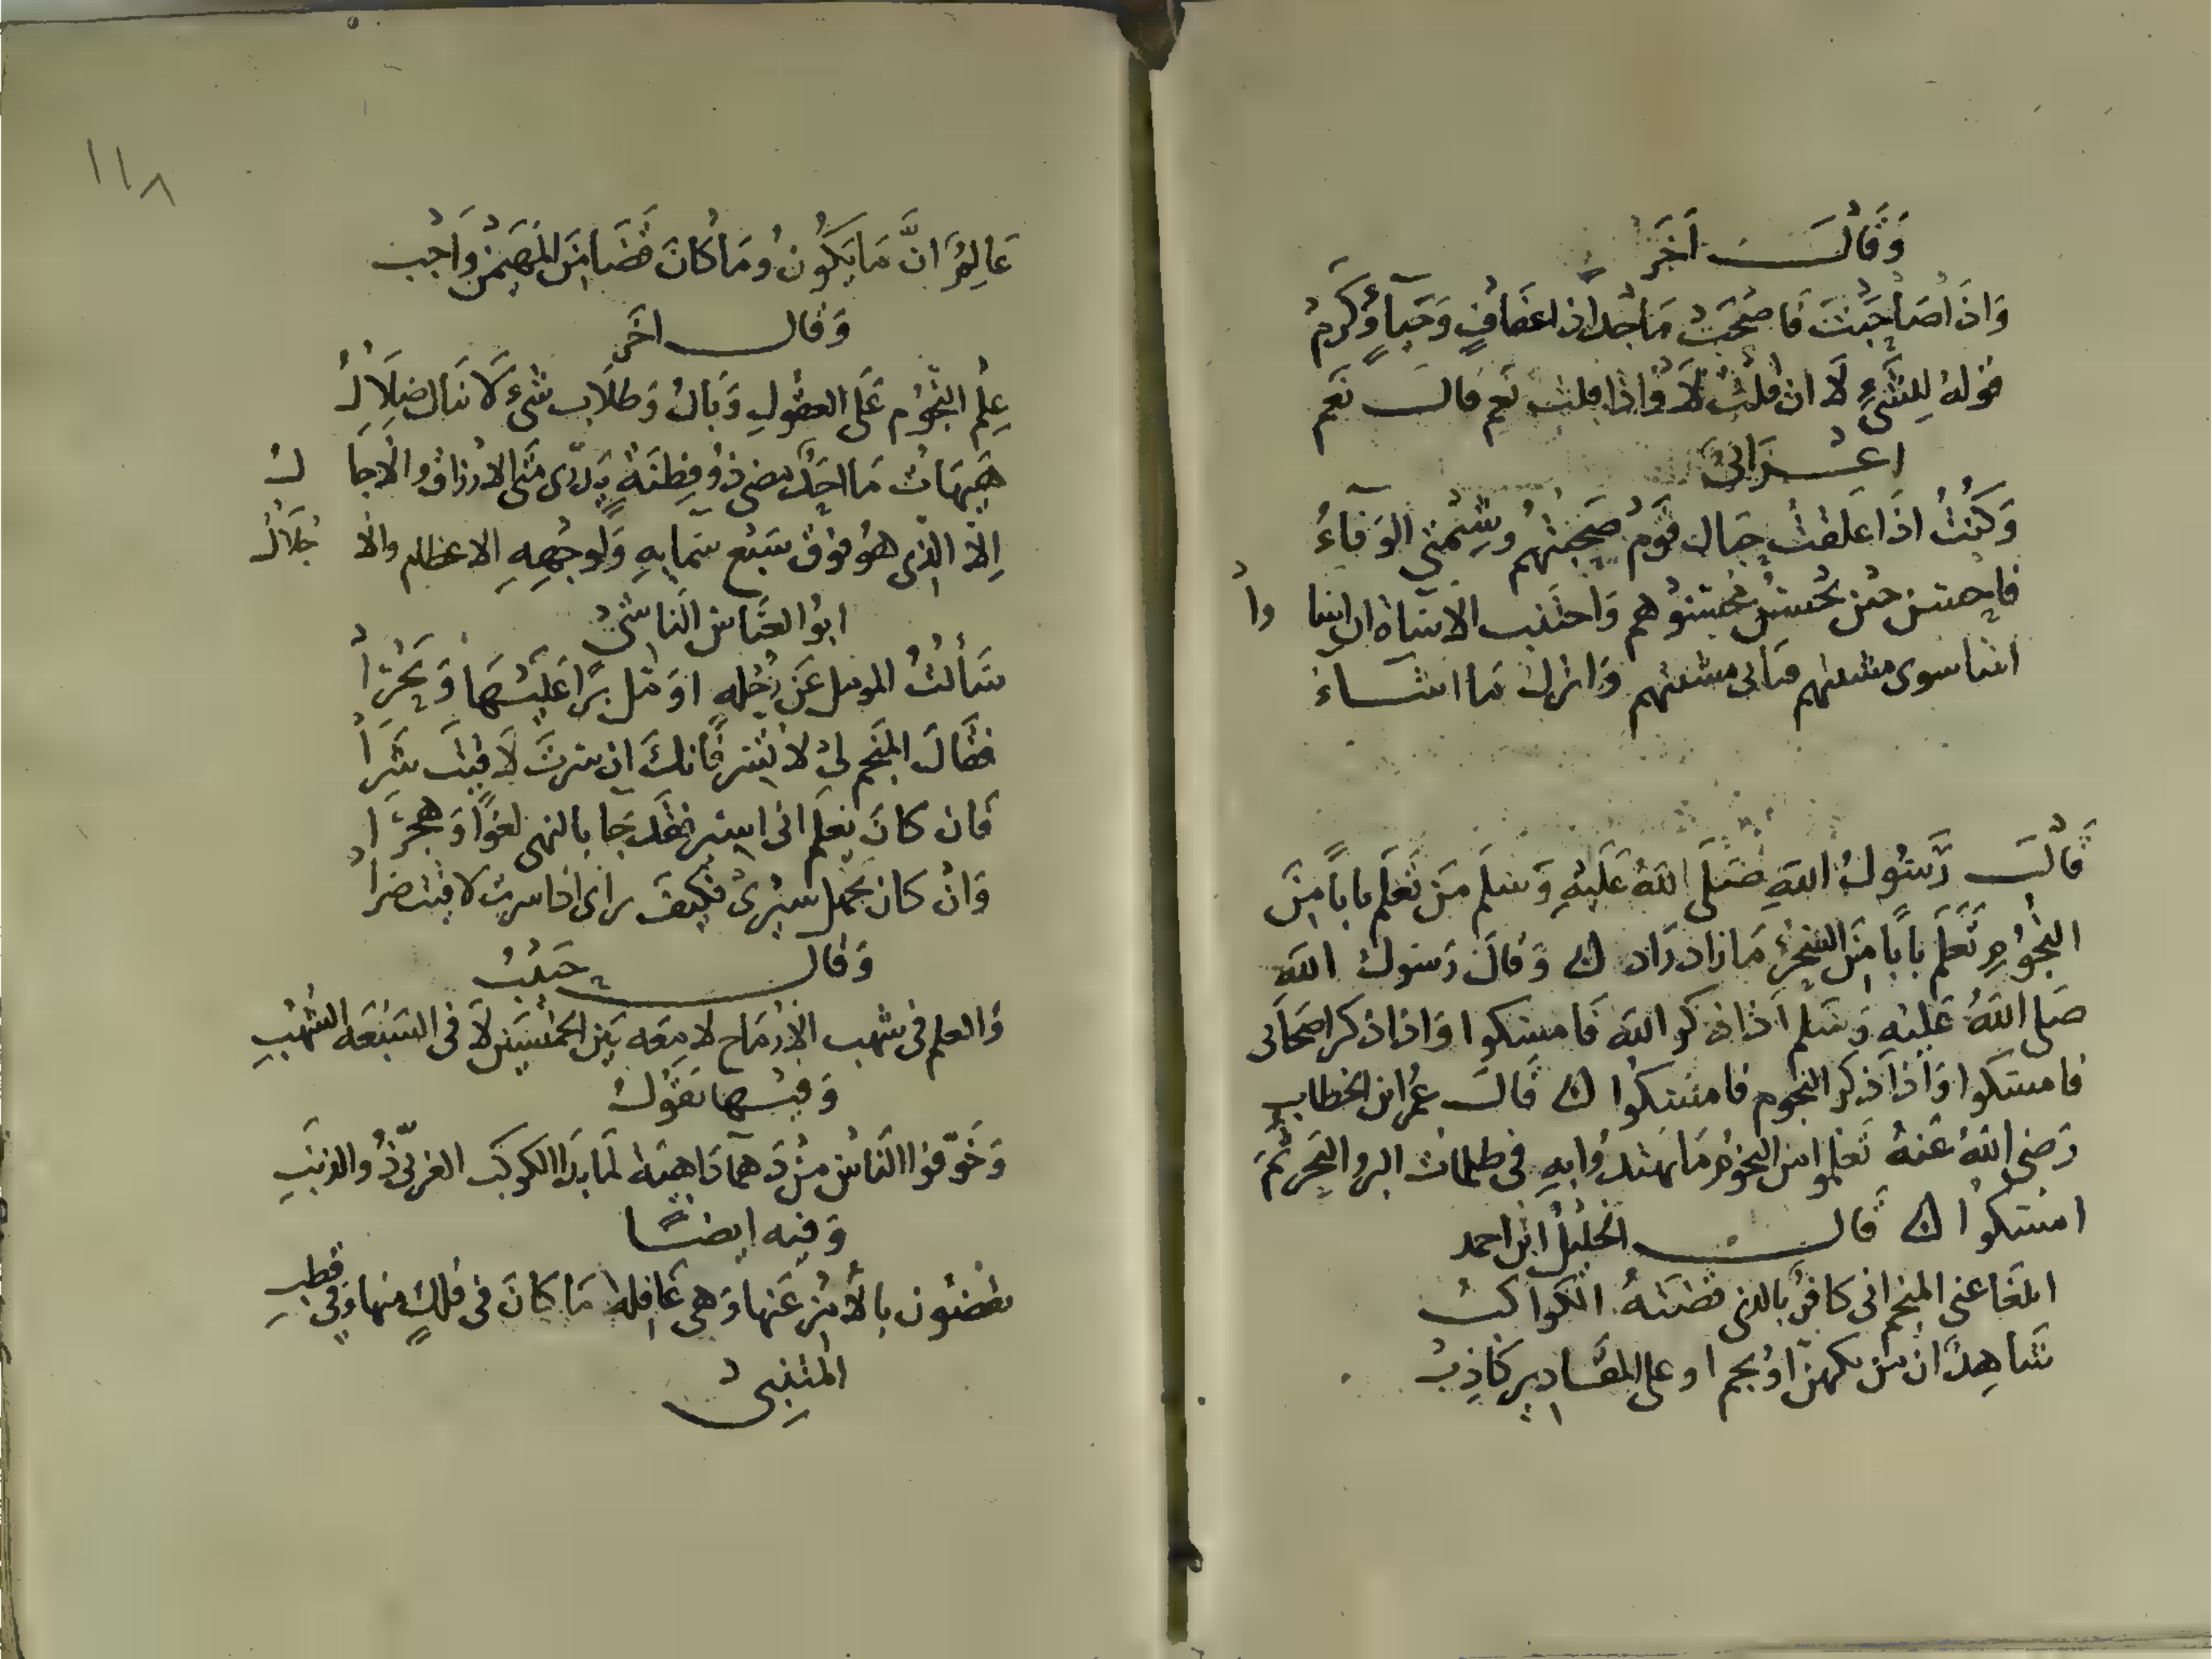 وَقَالَ آخَرُ
وَاذَا صَاحَبْتَ فَاصْحَبْ مَاجِداً ذا عفافٍ وَحَيَآءٍ وَكَرَمْ
قوله لِلشَّيْءِ لَا ان قُلْتَ لَا وَاذا قلت نعم قالَ نَعَم
اعْرَابِيّ
وَكُنْتُ اذَا عَلِقْتُ حِبال قَوْمٍ صَحِبْتُهُم وَشِيْمَتِي الوَفَآءُ
فاحسن حين يُحْسِنُ مُحْسِنُوهم وَاجتَنِب الاساة ان اساوا
اشا سوى مشيتهم فاتى مشيتهم وَاترك ما اشاء
قَالَ رَسُولُ اللهِ صَلَّى اللهُ عَلَيْهِ وَسَلَّم مَن تَعَلَّم باباً مِنَ
النجُوْمِ تَعَلَّم بَاباً مِنَ السِّحْرِ مَا زاد زَاد ۞ وَقالَ رَسُول اللهِ
صَلى اللهُ عَلَيْهِ وَسَلم اذا ذكر اللهَ فَامسكوا وَاذا ذكر اصحَابى
فامسكوا وَاذا ذكر النجوم فامسكوا ۞ قَالَ عُمر ابن الخطاب
رَضِي اللهُ عَنهُ تَعَلموا من النجوْم مَا تهتدُوا بِهِ فى ظلمات البر والبَحرِ ثُمَّ
امْسكوا ۞ قالَ الخليلُ ابن احمد
ابلغا عنى المنجم انى كافرٌ بالذى قضتهُ الكوَاكبُ
شَاهِدٌ ان من تكهن اوْ نجم او على المقَادِيرِ كاذِبُ
١١٨
عَالِمٌ انَّ مَا يَكُونُ وَمَا كَانَ قَضَا مِنَ المُهَيْمِنِ وَاجب
وَقالَ اخَر
عِلْم النّجُوْم عَلَى العقُولِ وَبالُ وَطلَاب شىء لَا يَنال ضلَالُ
هَيهَاتَ مَا احَدٌ مضى ذُو فِطنَةٍ يَدرى مَتى الارْزاق والاجا لُ
اِلّا الذى هُو فوق سَبْع سَمايِهِ وَلِوجْهِهِ الاعظام والا جْلَالُ
ابُو العَبَّاس النَاشى
سَألتُ المومل عَن رُحْلِهِ اومل بَرّاً عَلَيْهَا وَبَحْرَاً
فقَالَ المنَجم لِي لا تَسِر فَانكَ ان سرتَ لَاقيتَ شَرّاً
فَان كانَ يَعلم انى اسير فقَد جَا بالنهى لغواً وَهجرَا
وَانْ كان يَجهل سَيْرِىْ فكيفَ رأى اذا سرت لاقيت ضراً
وَقال حَبيْبُ
وَالعلم فى شهب الارْمَاح لامِعَه بَين الخَمْيسَين لَا فى السَبْعَه الشُّهُبِ
وَفيها يَقُوْلُ
وَخَوَّفُوا النَاسَ مِنْ دَهْمآ دَاهيَة لَمَا بدَا الكوكب الغربىّ ذُو الذنَبِ
وَفيه ايضًا
يقضُون بالأمْر عَنهَا وَهى غَافِلة مَا كَانَ فى فلكٍ منها وَفى قطبِ
المتنبى